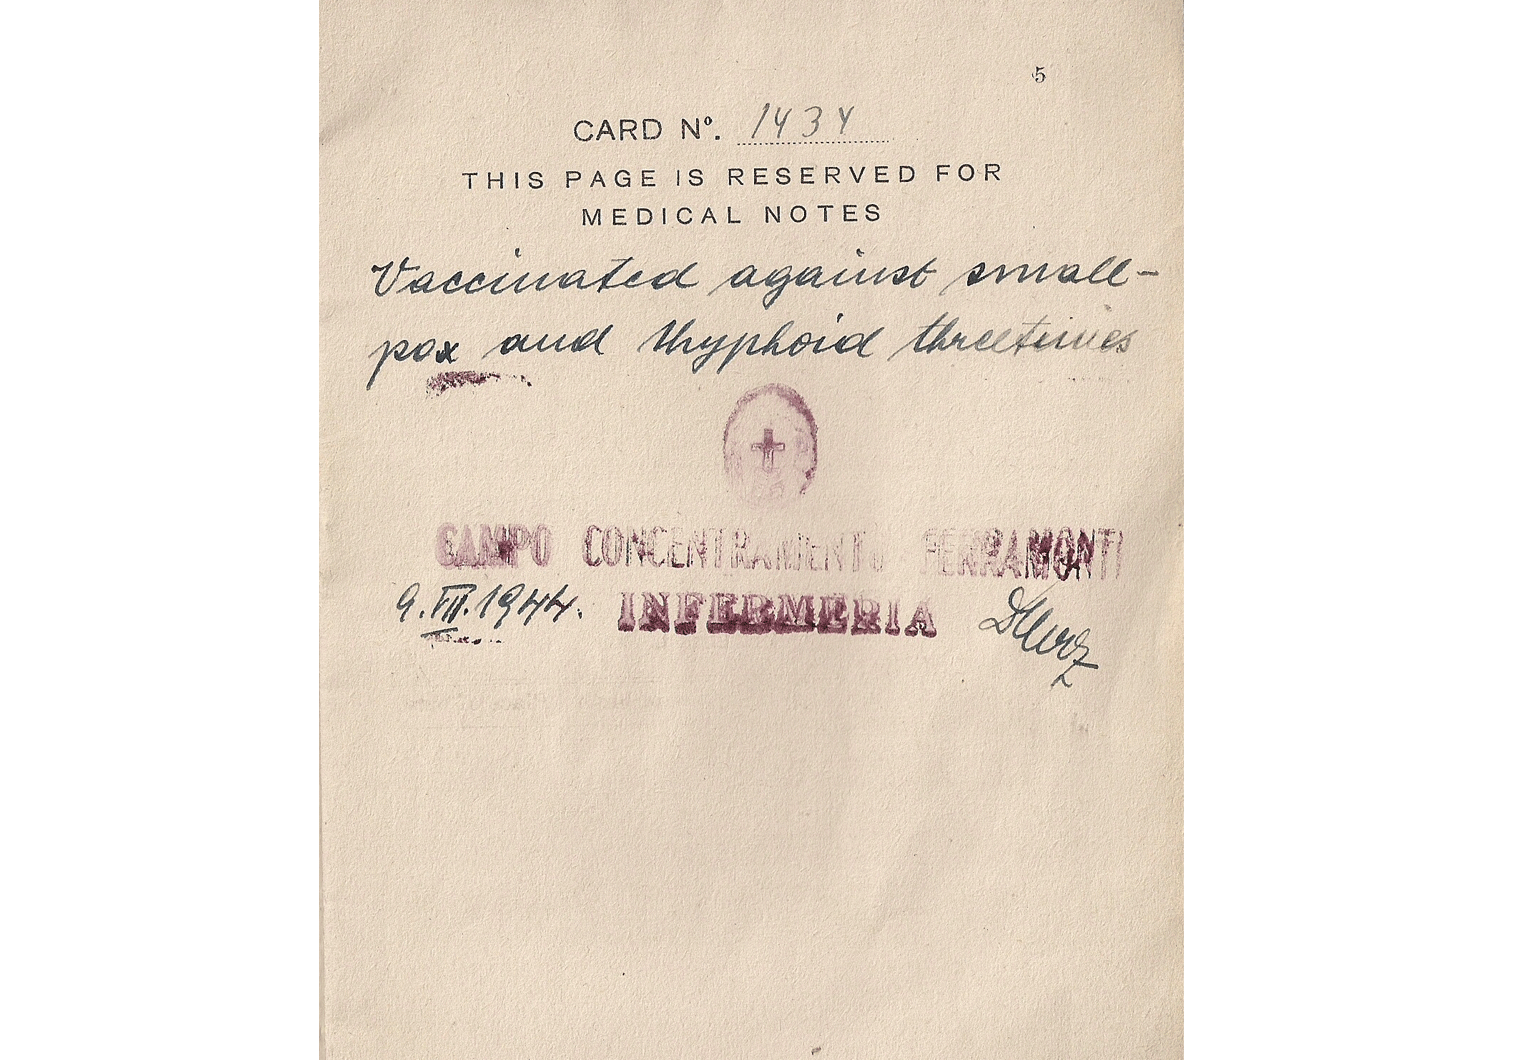 5
CARD Nº. 1434
THIS PAGE IS RESERVED FOR
MEDICAL NOTES
Vaccinated against small-
pox and thyphoid threetimes
CAMPO CONCENTRAMENTO FERRAMONTI
9.VII.1944. INFERMERIA